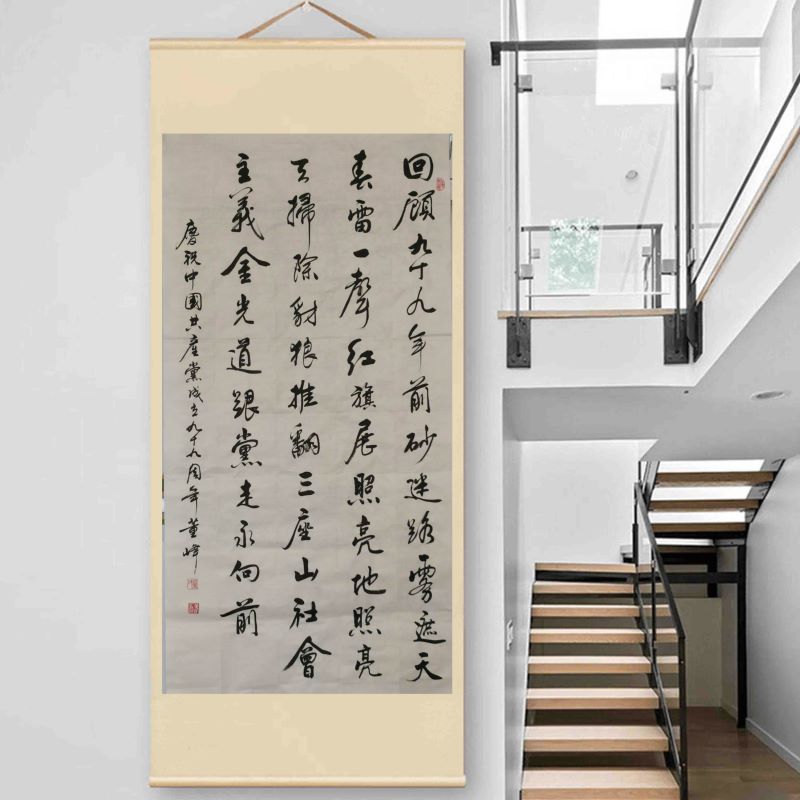 回顧九十九年前砂迷路霧遮天
春雷一聲紅旗展照亮地照亮
天掃除豺狼推翻三座山社會
主義金光道跟黨走永向前
慶祝中國共產黨成立九十九周年董峰